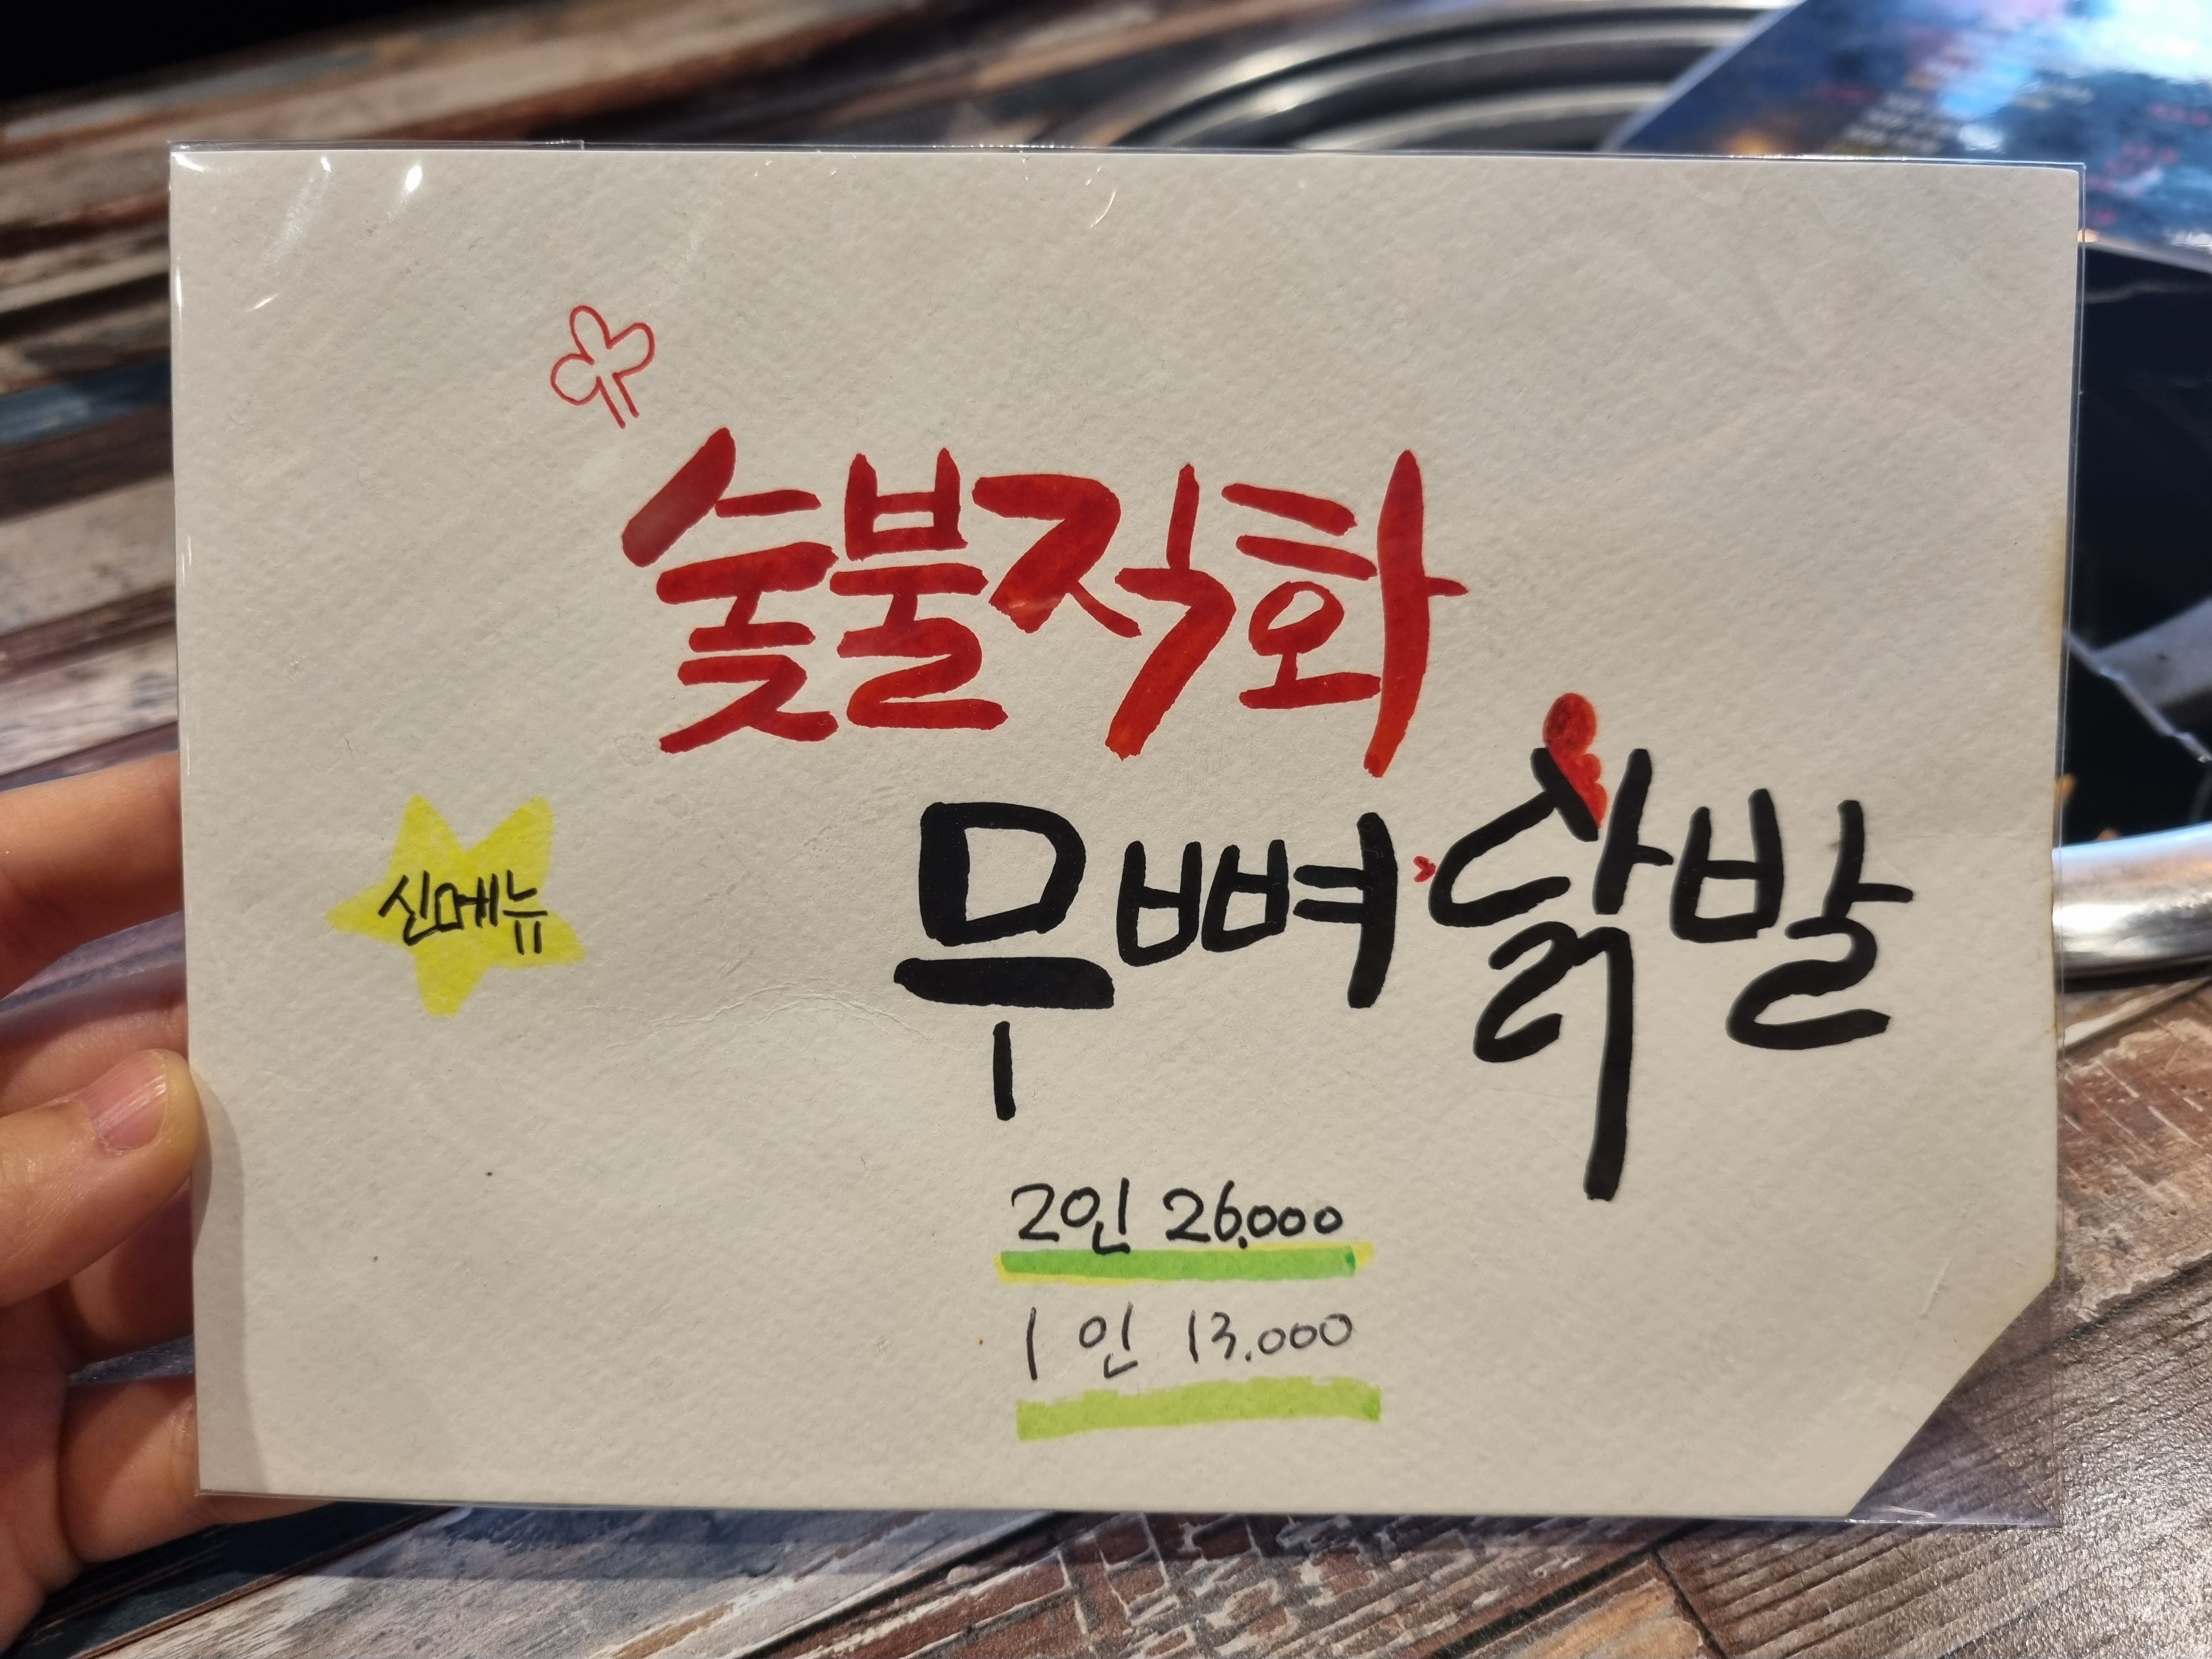 숯불직화
무뼈닭발
신메뉴
2인 26.000
1인 13.000